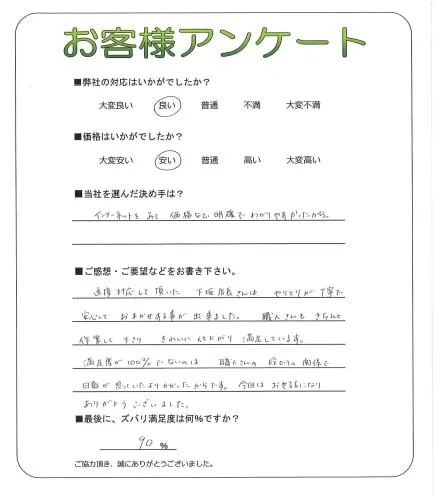 お客様アンケート
■弊社の対応はいかがでしたか？
大変良い 良い 普通 不満 大変不満
■価格はいかがでしたか？
大変安い 安い 普通 高い 大変高い
■当社を選んだ決め手は？
インターネットをみて 価格など明確でわかりやすかったから。
■ご感想・ご要望などをお書き下さい。
直接対応して頂いた 下坂店長さんは やりとりが丁寧で
安心して おまかせする事が出来ました。 職人さんも きちんと
作業して下さり きれいに仕上がり 満足しています。
満足度が100%でないのは 職人さんの 段どりの関係で
日数が思っていたよりかかったからです。 今回は お世話になり
ありがとうございました。
■最後に、ズバリ満足度は何%ですか？
90 %
ご協力頂き、誠にありがとうございました。